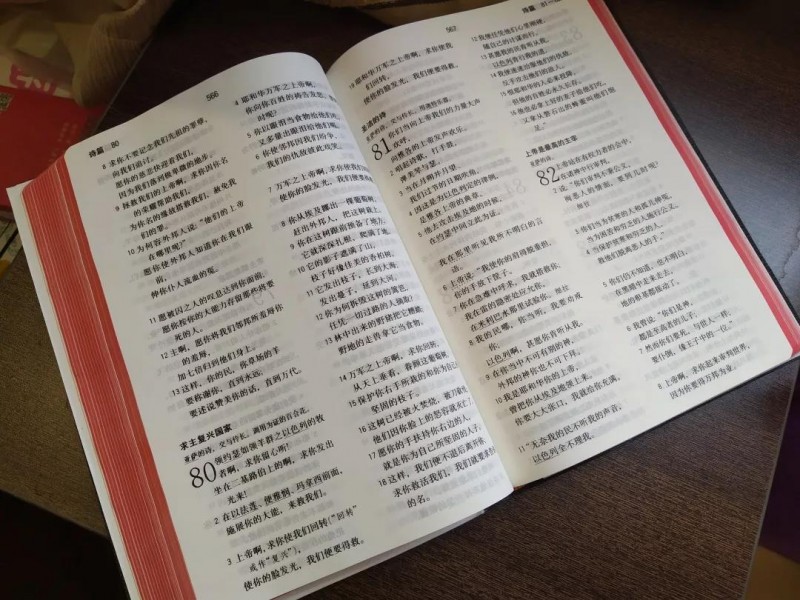 566
诗篇 80
8 求你不要记念我们先祖的罪孽，
向我们追讨。
愿你的慈悲快迎着我们，
因为我们落到极卑微的地步。
9 拯救我们的上帝啊，求你因你名
的荣耀帮助我们，
为你名的缘故搭救我们，赦免我
们的罪。
10 为何容外邦人说：“他们的上帝
在哪里呢？”
愿你使外邦人知道你在我们眼
前，
伸你仆人流血的冤。
11 愿被囚之人的叹息达到你面前，
愿你按你的大能力存留那些将要
死的人。
12 主啊，愿你将我们邻邦所羞辱你
的羞辱，
加七倍归到他们身上。
13 这样，你的民，你草场的羊
要称谢你，直到永远；
要述说赞美你的话，直到万代。
求主复兴国家
亚萨的诗，交与伶长。调用为证的百合花。
80 领约瑟如领羊群之以色列的牧
者啊，求你留心听！
坐在二基路伯上的啊，求你发出
光来！
2 在以法莲、便雅悯、玛拿西前面，
施展你的大能，来救我们。
3 上帝啊，求你使我们回转（“回转”
或作“复兴”），
使你的脸发光，我们便要得救。
4 耶和华万军之上帝啊，
你向你百姓的祷告发怒，
时呢？
5 你以眼泪当食物给他们吃，
又多量出眼泪给他们喝。
6 你使邻邦因我们纷争，
我们的仇敌彼此戏笑。
7 万军之上帝啊，求你使我们
使你的脸发光，我们便要得
8 你从埃及挪出一棵葡萄树，
赶出外邦人，把这树栽上。
9 你在这树跟前预备了地方，
它就深深扎根，爬满了地。
10 它的影子遮满了山，
枝子好像佳美的香柏树。
11 它发出枝子，长到大海，
发出蔓子，延到大河。
12 你为何拆毁这树的篱笆，
任凭一切过路的人摘取？
13 林中出来的野猪把它糟踏，
野地的走兽拿它当食物。
14 万军之上帝啊，求你回转，
从天上垂看，眷顾这葡萄树，
15 保护你右手所栽的和你为自己
坚固的枝子。
16 这树已经被火焚烧，被刀砍伐，
他们因你脸上的怒容就灭亡了。
17 愿你的手扶持你右边的人，
就是你为自己所坚固的人子。
18 这样，我们便不退后离开你，
求你救活我们，我们就要求告
的名。
567
诗篇 81
19 耶和华万军之上帝啊，求你使我
们回转，
使你的脸发光，我们便要得救。
亚萨的诗，交与伶长。用迦特乐器。
81 你们当向上帝我们的力量大声
欢呼，
向雅各的上帝发声欢乐。
2 唱起诗歌，打手鼓，
弹美琴与瑟。
3 当在月朔并月望，
我们过节的日期吹角，
4 因这是为以色列定的律例，
是雅各上帝的典章。
5 他去攻击埃及地的时候，
在约瑟中间立此为证。
我在那里听见我所不明白的言
语。
6 上帝说：“我使你的肩得脱重担，
你的手放下筐子。
7 你在急难中呼求，我就搭救你，
我在雷的隐密处应允你，
在米利巴水那里试验你。细拉
8 我的民哪，你当听，我要劝戒
你；
以色列啊，甚愿你肯听从我。
9 在你当中不可有别的神，
外邦的神你也不可下拜。
10 我是耶和华你的上帝，
曾把你从埃及地领上来，
你要大大张口，我就给你充满。
11 “无奈我的民不听我的声音，
以色列全不理我。
12 我便任凭他们心里刚硬，
随自己的计谋而行。
13 甚愿我的民肯听从我，
以色列肯行我的道，
14 我便速速治服他们的仇敌，
反手攻击他们的敌人。
上帝是最高的主宰
亚萨的诗。
82 上帝站在有权力者的会中，
在诸神中行审判，
2 说：“你们审判不秉公义，
徇恶人的情面，要到几时呢？
细拉
3 你们当为贫寒的人和孤儿伸冤，
当为困苦和穷乏的人施行公义。
4 当保护贫寒和穷乏的人，
救他们脱离恶人的手。”
5 你们仍不知道，也不明白，
在黑暗中走来走去；
地的根基都摇动了。
6 我曾说：“你们是神，
都是至高者的儿子；
7 然而你们要死，与世人一样，
要仆倒，像王子中的一位。”
8 上帝啊，求你起来审判世界，
因为你要得万邦为业。